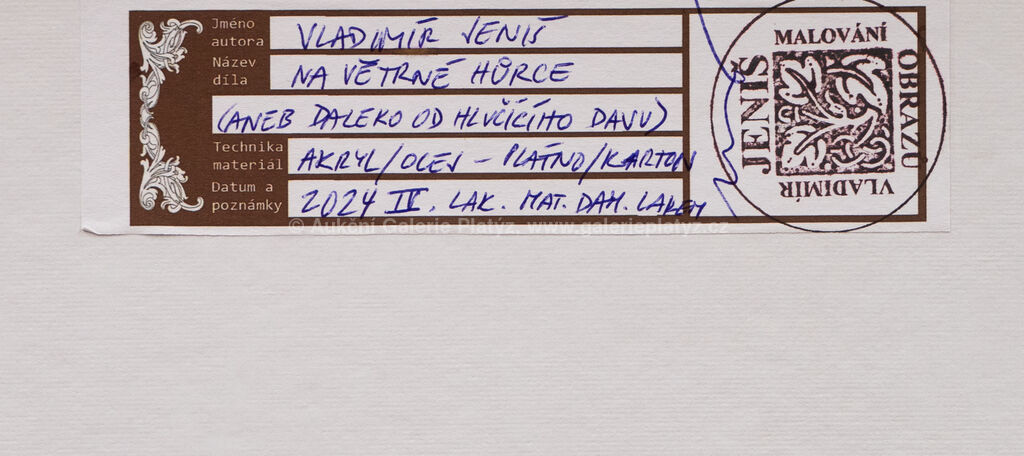 Jméno autora VLADIMÍR JENIŠ
Název díla NA VĚTRNÉ HŮRCE
(ANEB DALEKO OD HLUČÍCÍHO DAVU)
Technika materiál AKRYL/OLEJ – PLÁTNO/KARTON
Datum a poznámky 2024 IV. LAK. MAT. DAM. LAKEM
© Aukční Galerie Platýz, www.galerieplatyz.cz
MALOVÁNÍ
OBRAZŮ
VLADIMÍR
JENIŠ